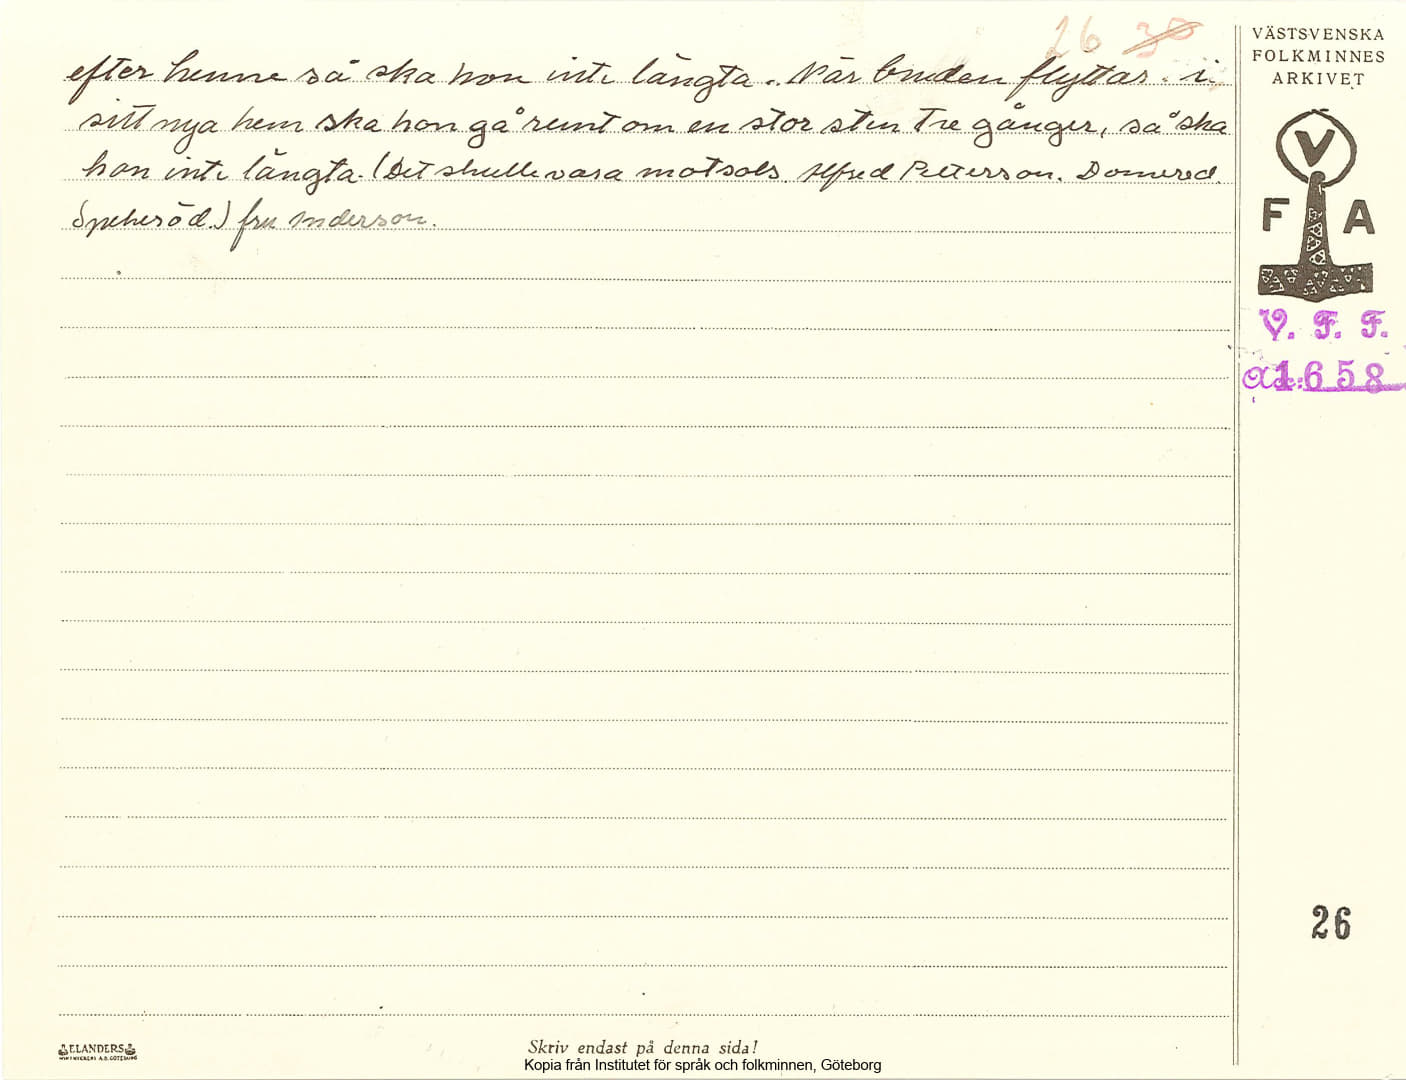 26 30
VÄSTSVENSKA
FOLKMINNES
ARKIVET
efter henne så ska hon inte längta. När bruden flyttar i
sitt nya hem ska hon gå runt om en stor sten tre gånger, så ska
hon inte längta. (Det skulle vara motsols. Alfred Petterson. Domered.
Spekeröd.) fru Anderson.
V
F A
V. F. F.
Acc: 1658
26
ELANDERS
Skriv endast på denna sida!
Kopia från Institutet för språk och folkminnen, Göteborg